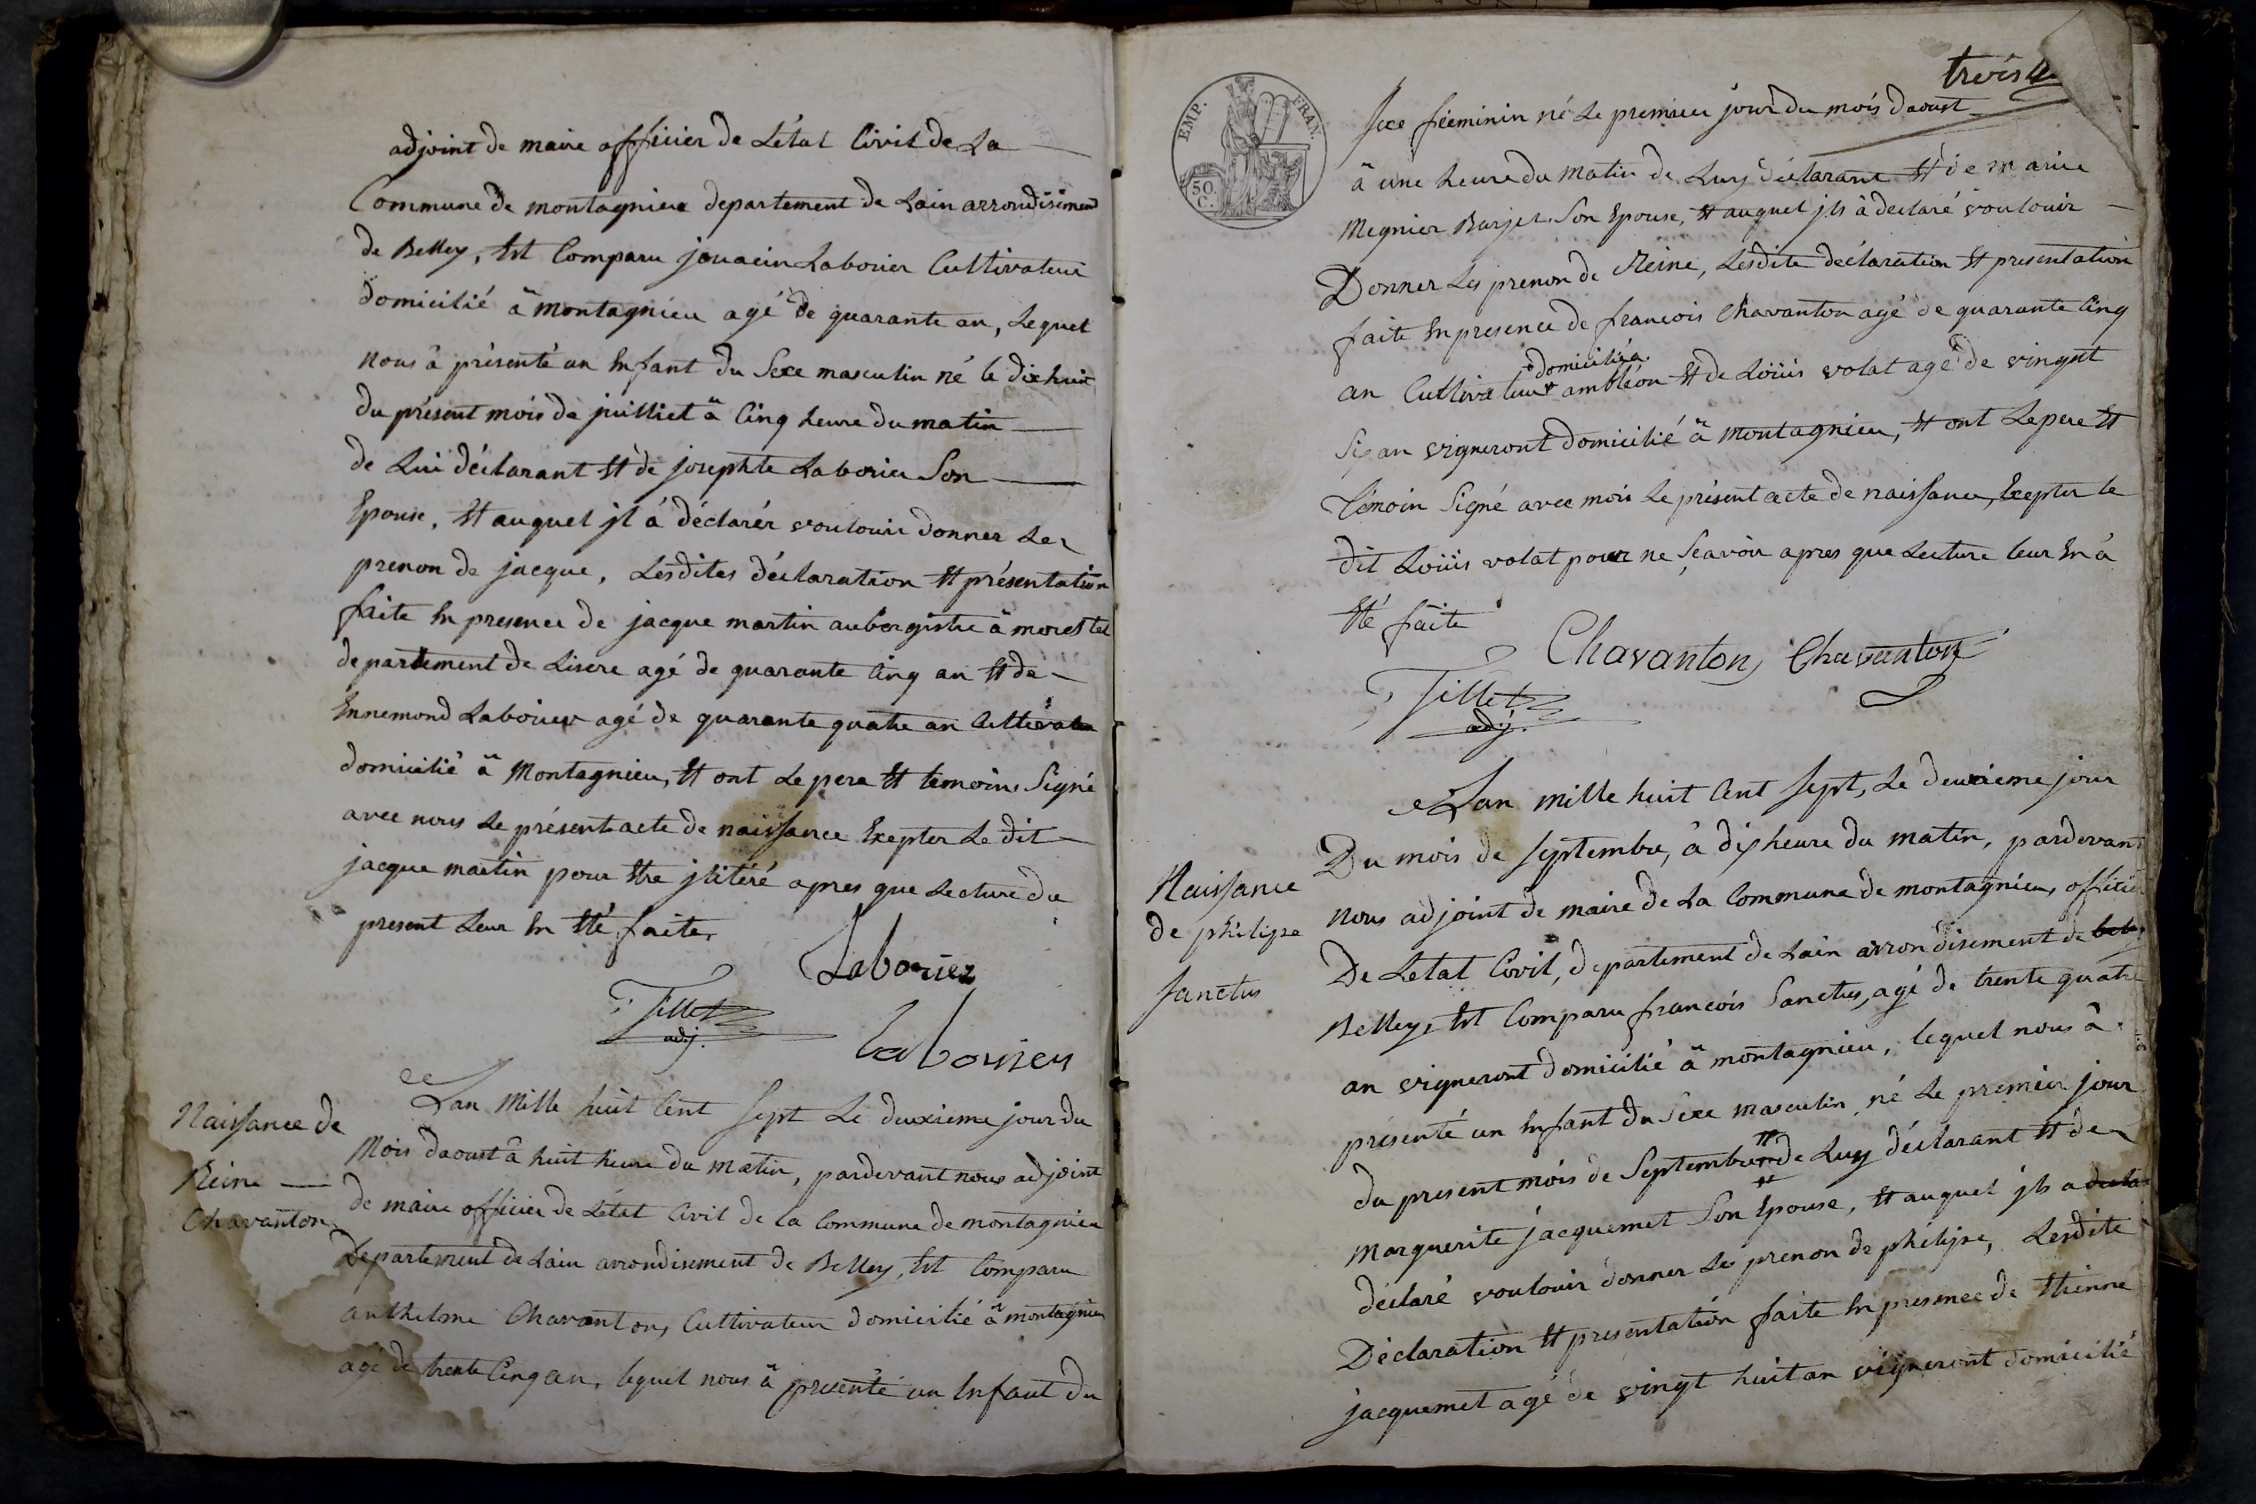 adjoint de maire officier de L'état Civil de La
Commune de montagnieu departement de Lain arrondisiment
de Belley, Est Comparu jouacin Laborier Cultivateur
domicilié â montagnieu agé de quarante an, Lequel
nous â présenté un Enfant du Sexe masculin né le dixhuit
du présent mois de juilliet â Cinq heure du matin
de Lui déclarant Et de josephte Laborier Son
Epouse, Et auquel jl á déclarér voulouir donner Le
prenon de jacque, Lesdites déclaration Et présentation
faite En presence de jacque martin aubergistre â morestel
departement de Lisere agé de quarante Cinq an Et de
Ennemond Laborier agé de quarante quatre an Cultivateur
domicilié â Montagnieu, Et ont Le pere Et temoins Signé
avec nous Le présent acte de naissance Exepter Le dit
jacque martin pour Etre jlitéré apres que Lecture du
present Leur En Eté faite,
Laborier
Tillet
adj.
Laborier
Naissance de
Reine
Chavanton
Lan Mille huit Cent Sept Le deuxieme jour du
Mois daoust â huit heure du matin, pardevant nous adjoint
de maire officier de L'état Civil de la Commune de montagnieu
Departement de Lain arrondisement de Belley, Est Comparu
anthelme Chavanton, Cultivateur domicilié â montagnieu
agé de trente Cinq an, lequel nous â presenté un Enfant du
EMP. FRAN.
50 C.
trois
Sexe féeminin né Le premieur jour du mois daoust
â une heure du matin de Luy déclarant Et de marie
Megnier Barjet Son Epouse, Et auquel jls â declaré voulouir
Donner Les prenon de Reine, Lesdite déclaration Et presentation
faite En presence de francois Chavanton agé de quarante Cinq
domicilié a
an Cultivateur ambléon Et de Loüis volat agé de vinght
Six an vigneront domicilié â Montagnieu, Et ont Le pere Et
Témoin Signé avec moi Le présent acte de naissance, Exepter le
dit Loüis volat pour ne Sçavoir apres que Lecture leur En â
Eté faite
Chavanton, Chavanton
Tillet
adj.
Naissance
de philipe
Sanctus
Lan mille huit Cent Sept, Le deuxieme jour
Du mois de Septembre, â dix heure du matin, pardevant
nous adjoint de maire de La Commune de montagnieu, officier
De Letat Civil, departement de Lain arrondisement de
Belley, Est Comparu francois Sanctus, agé de trente quatre
an vigneront domicilié â montagnieu, lequel nous â
présenté un Enfant du Sexe masculin, né Le premier jour
du present mois de Septembre de Luy déclarant Et de
Marguerite jacquemet Son Epouse, Et auquel jls a
déclaré voulouir donner Les prenon de philipe, Lesdite
Déclaration Et presentation faite En presence de Etienne
jacquemet agé de vingt huit an vigneront domicilié